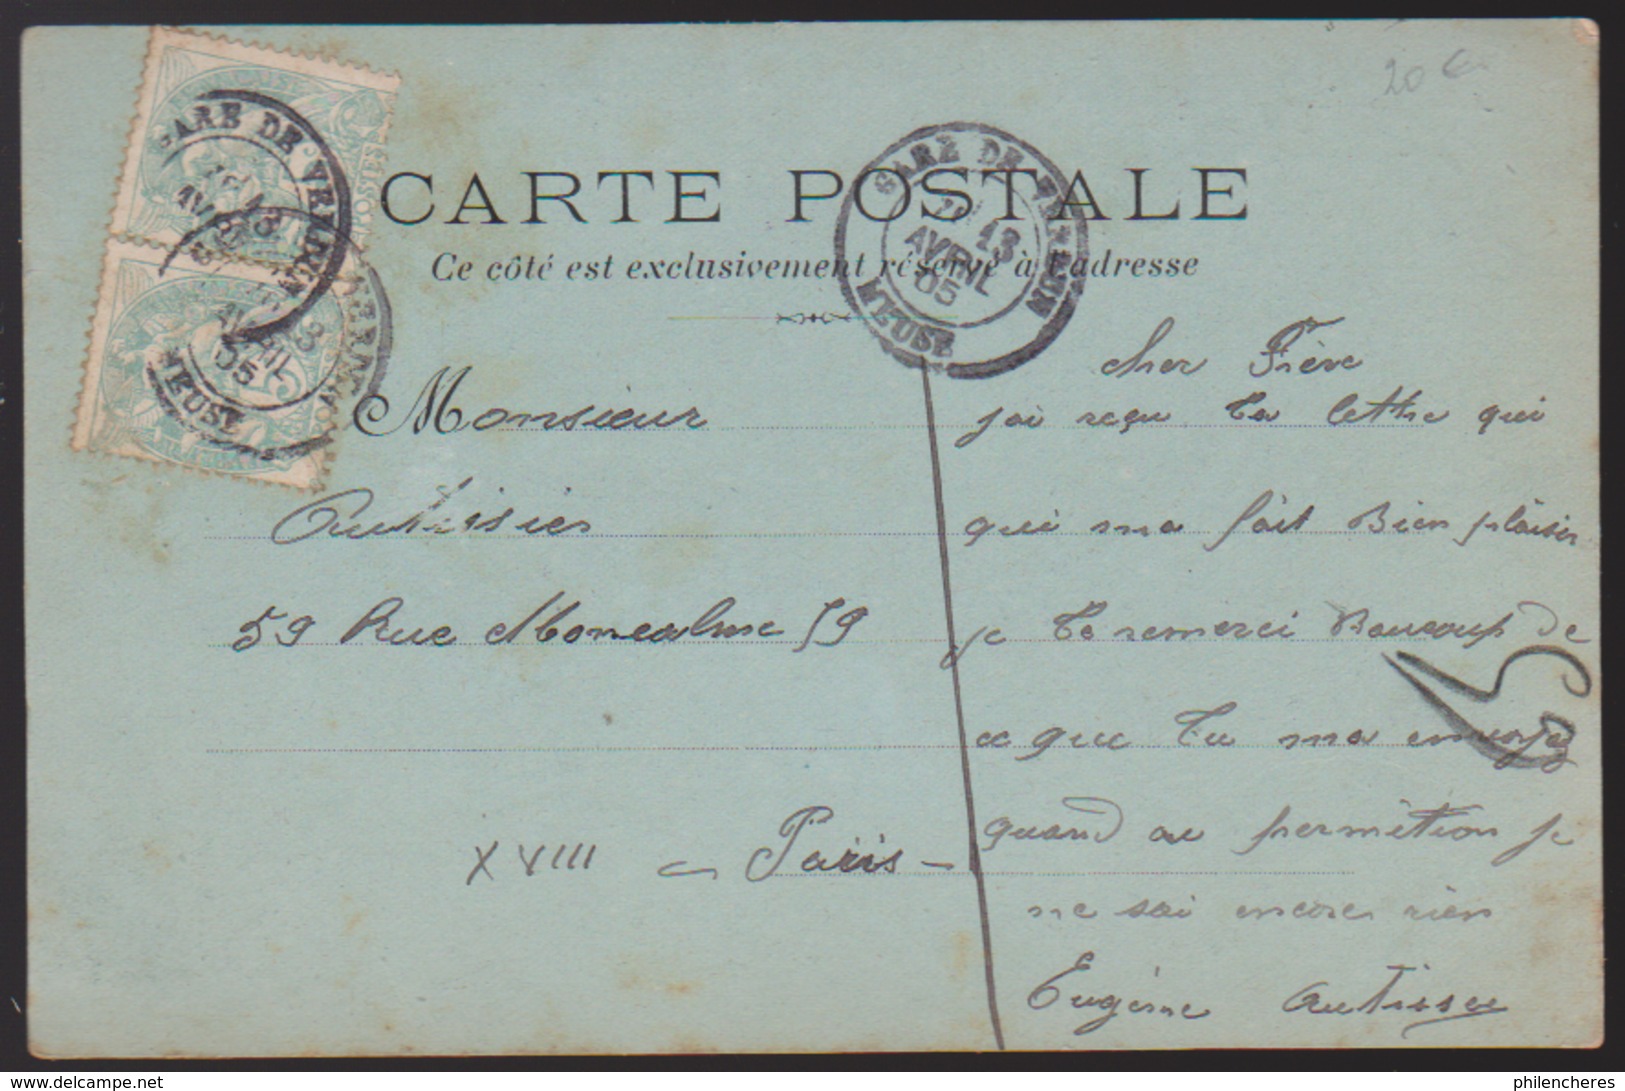 20 €
CARTE POSTALE
Ce côté est exclusivement réservé à l'adresse
GARE DE VERDUN
13
AVRIL
05
MEUSE
GARE DE VERDUN
13
AVRIL
05
MEUSE
Monsieur
59 Rue Moncalme 59
XVIII
Paris
cher Frère
j'ai reçu ta lettre qui
qui ma fait Bien plaisir
je te remerci Baucoup de
ce que tu ma envoyez
quand au permition je
ne sai encore rien
Eugéne
philencheres
www.delcampe.net